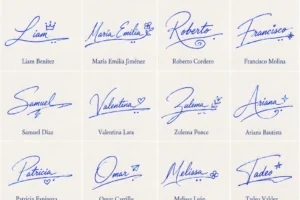 Liam
María Emilia
Roberto
Francisco
Liam Benítez
María Emilia Jiménez
Roberto Cordero
Francisco Molina
Samuel
Valentina
Zulema
Ariana
Samuel Díaz
Valentina Lara
Zulema Ponce
Ariana Bautista
Patricia
Omar
Melissa
Tadeo
Patricia Espinoza
Omar Castillo
Melissa León
Tadeo Valdez